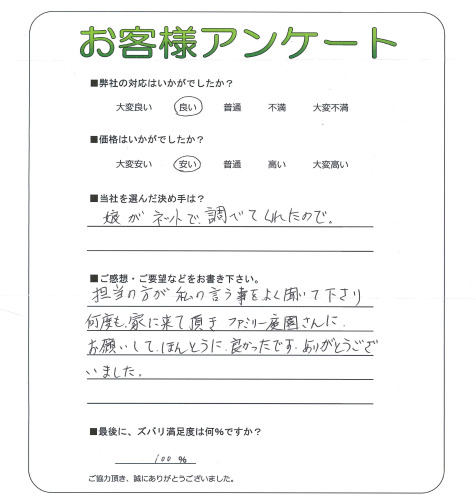 お客様アンケート
■弊社の対応はいかがでしたか？
大変良い 良い 普通 不満 大変不満
■価格はいかがでしたか？
大変安い 安い 普通 高い 大変高い
■当社を選んだ決め手は？
娘がネットで調べてくれたので。
■ご感想・ご要望などをお書き下さい。
担当の方が私の言う事をよく聞いて下さり
何度も、家に来て頂きファミリー庭園さんに
お願いして、ほんとうに、良かったです。ありがとうござ
いました。
■最後に、ズバリ満足度は何%ですか？
100 %
ご協力頂き、誠にありがとうございました。